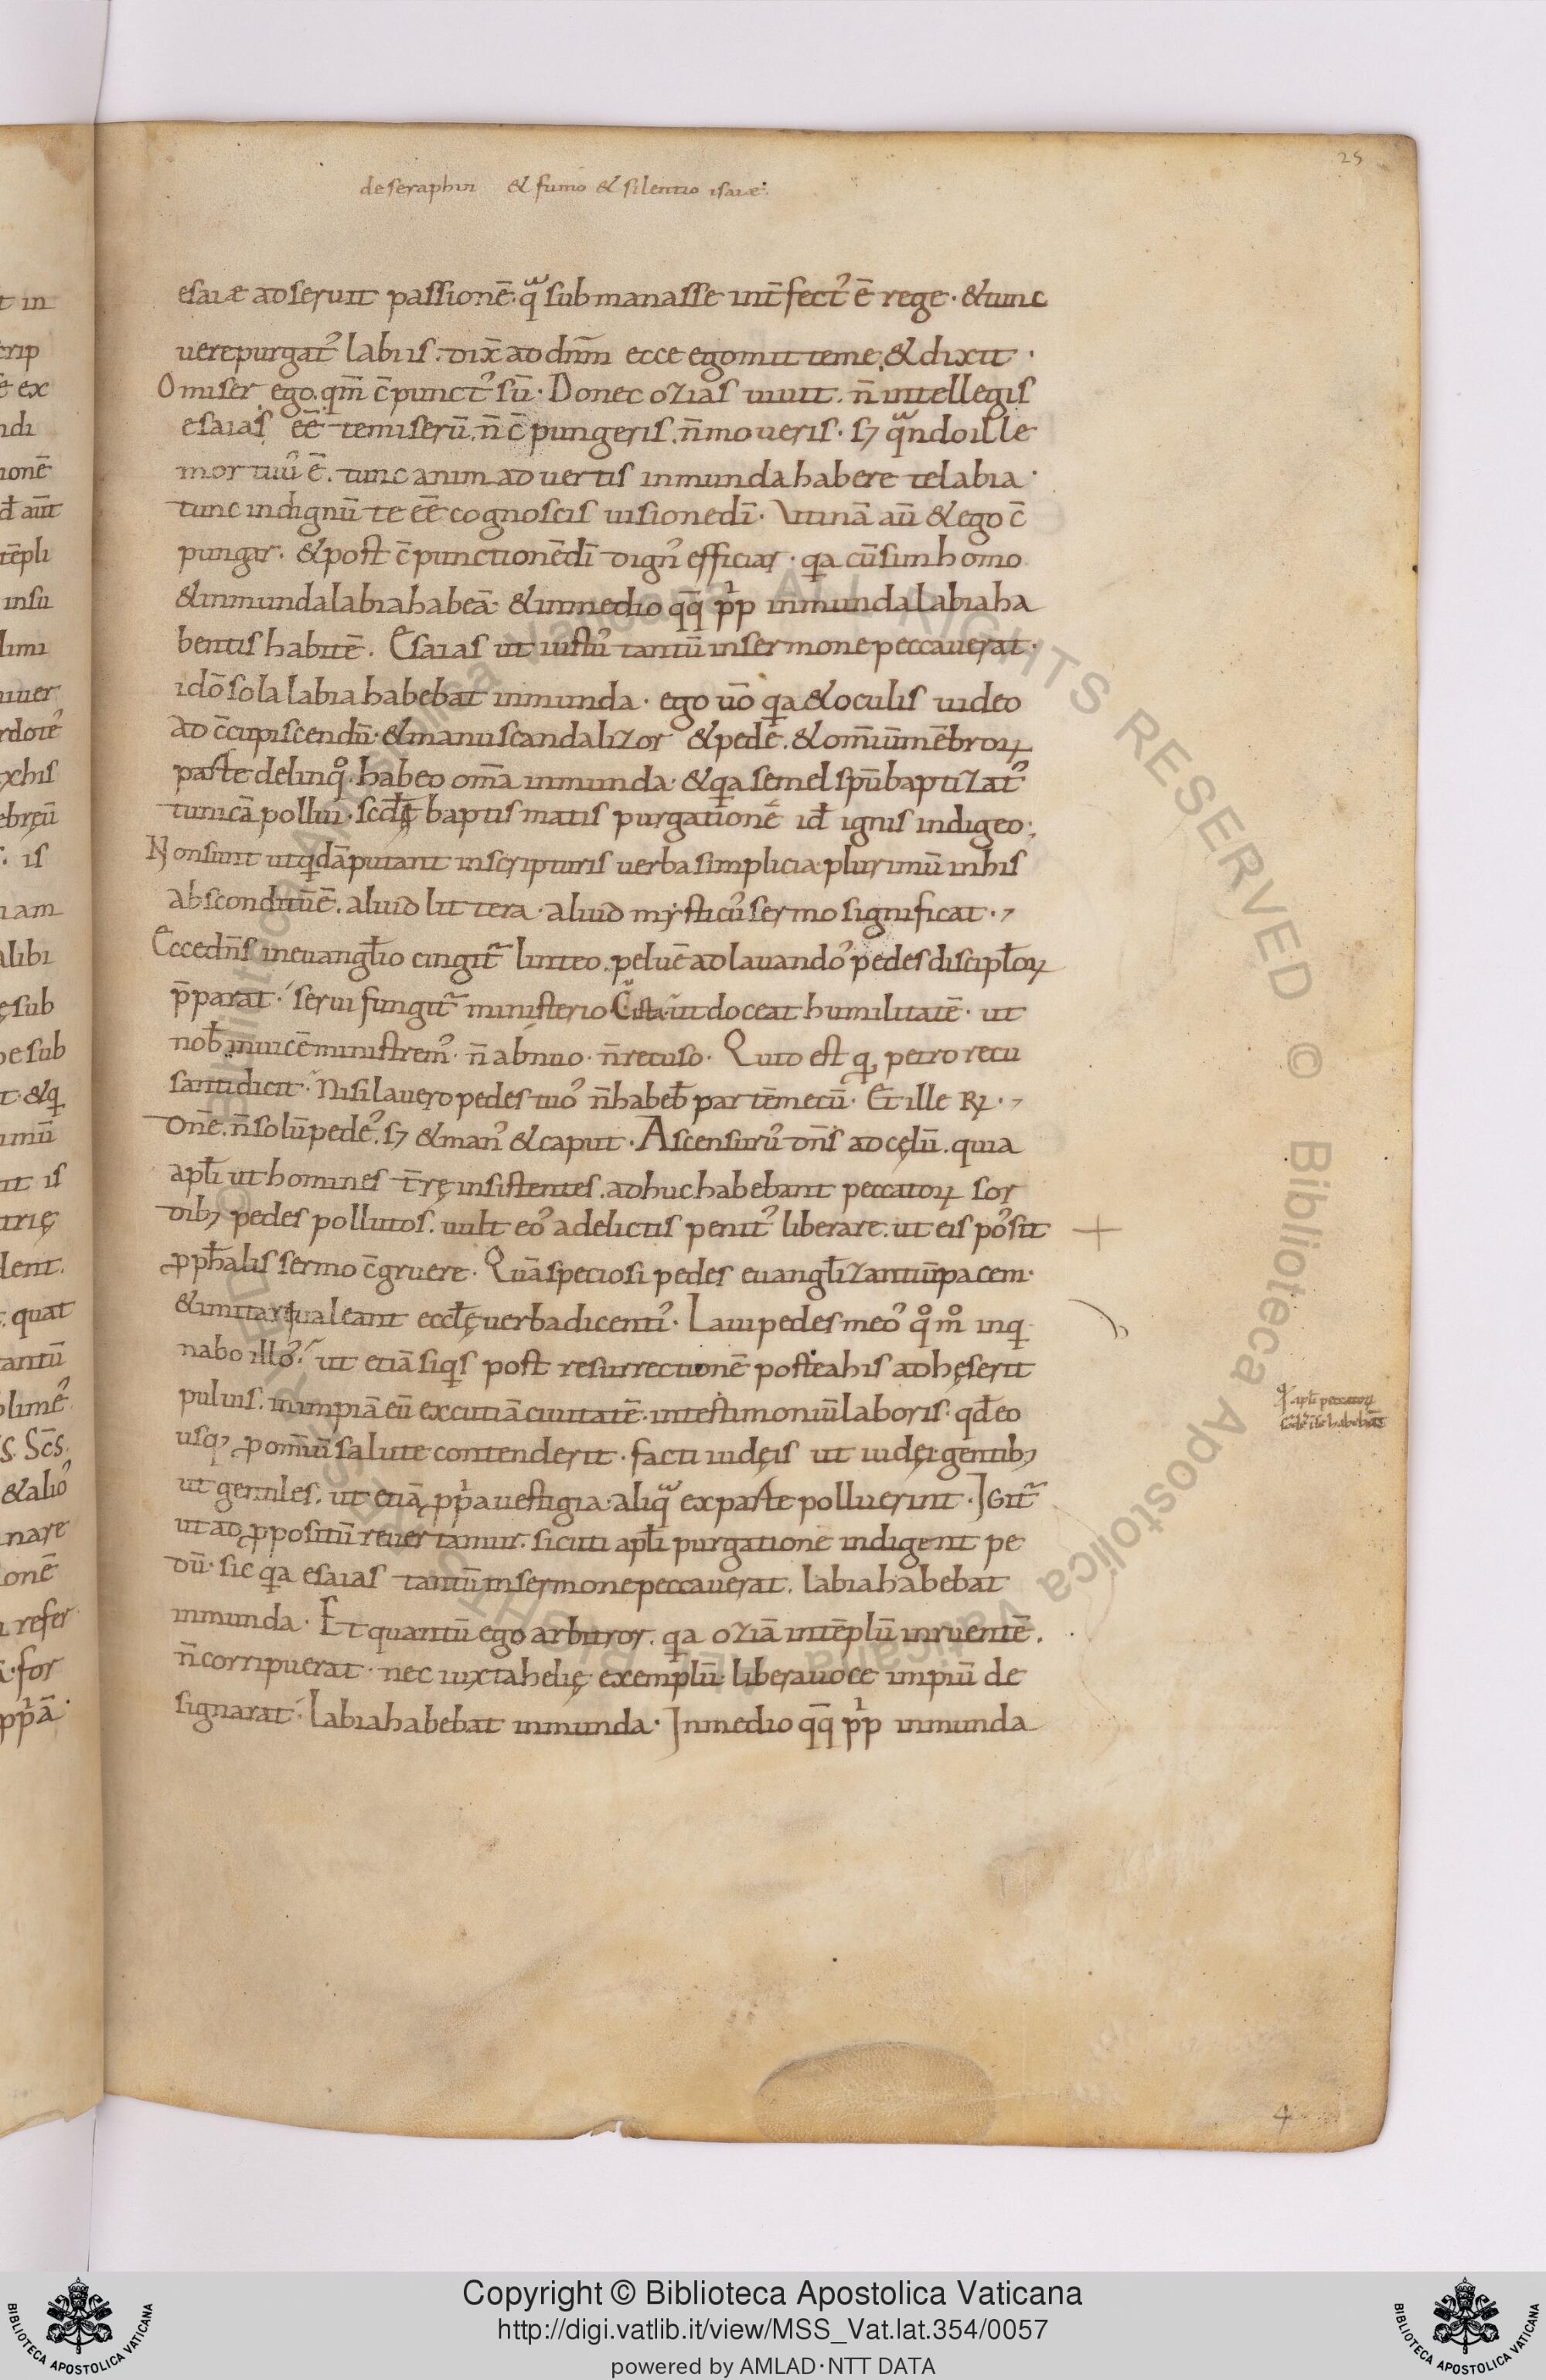 25
de seraphin & fumo & silentio isaiae
esaiae adseruit passionē. qͣ sub manasse int̄fect᾽ ē rege · & tunc
uere purgat᾽ labiis. dix̄ ad dn̄m ecce ego mitte me. & dixit ·
O miser ego. qm̄ c̄punct᾽ sū · Donec ozias uiuit. n̄ intellegis
esaias ēē te miserū. n̄ c̄pungeris. n̄ moueris · s; qͣndo ille
mortuu᾽ ē. tunc animaduertis inmunda habere te labia ·
tunc indignū te ēē cognoscis uisione dī · Vtinā aū & ego c̄
pungar · & post c̄punctionē dī dign᾽ efficiar · qa cū sim homo
& inmunda labia habeā · & in medio qq̄ pp̄ inmunda labia ha
bentis habitē. Esaias ut iustu᾽ tantū in sermone peccauerat ·
idō sola labia habebat inmunda · ego uō qa & oculis uideo
ad c̄cupiscendū · & manu scandalizor & pede᾽. & om̄iū mēbroꝝ
parte delinqͦ · habeo om̄a inmunda · & qa semel sp̄u baptizat᾽
tunicā pollui · scd̄ę baptismatis purgationē id̄ ignis indigeo ·
Non sunt ut qdā putant in scripturis uerba simplicia plurimū in his
absconditū ē. aliud littera · aliud mysticu᾽ sermo significat · ,
Ecce dn̄s in euangłio cingit᷑ linteo. peluē ad lauando᾽ pedes discipłoꝝ
p̄parat · serui fungit᷑ ministerio Esta ut doceat humilitatē · ut
nob̄ inuicē ministrem᾽ · n̄ abnuo · n̄ recuso · Quid est qꝫ petro recu
santi dicit · Nisi lauero pedes tuo᾽ n̄ habeb̄ partē mecū · Et ille ℞ · ,
dn̄e. n̄ solū pede᾽. s; & man᾽ & caput · Ascensuru᾽ dn̄s ad cęlū. quia
apłi ut homines t̄rę insistentes. adhuc habebant peccatoꝝ sor
dib; pedes pollutos. uult eo᾽ a delictis penit᾽ liberare. ut eis po᾽sit
ꝓph̄alis sermo c̄gruere · Quā speciosi pedes euangłizantiū pacem ·
& imitari ualeant eccłę uerba dicenti᾽ · Laui pedes meo᾽ qͦmͦ inq
nabo illo᾽ · ut etiā siqs post resurrectionē postea his adhęserit
puluis. in impiā eū excutiā ciuitatē · in testimoniū laboris · qd̄ eo
usq; ꝓ om̄iū salute contenderit · facti iudęis ut iudęi · gentib;
ut gentiles. ut etiā ꝓpria uestigia · aliqͣ ex parte polluerint · Igit᷑
ut ad ꝓpositū reuertamur · sicuti apłi purgatione indigent pe
dū · sic qa esaias tantū in sermone peccauerat. labia habebat
inmunda · Et quantū ego arbitror. qa oziā in tēplū inruentē.
n̄ corripuerat · nec iuxta helię exemplū · libera uoce impiū de
signarat · labia habebat inmunda · In medio qq̄ pp̄ inmunda
4
Copyright © Biblioteca Apostolica Vaticana
http://digi.vatlib.it/view/MSS_Vat.lat.354/0057
powered by AMLAD·NTT DATA